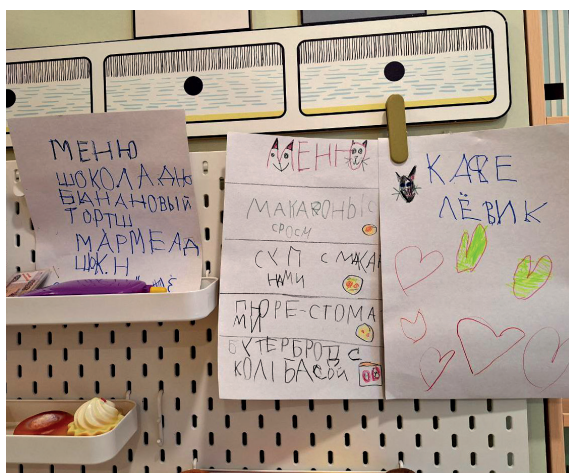 МЕНЮ
ШОКОЛАДНО
БАНАНОВЫЙ
ТОРТШ
МАРМЕЛАД
ШОК.Н
МЕНЮ
МАКАРОНЫ С
СРОСМ
СУП С МАКА
НАМИ
ПЮРЕ-СТОМА
МИ
БУТЕРБРОД С
КОЛІБАСОЙ
КАФЕ
ЛЁВИК